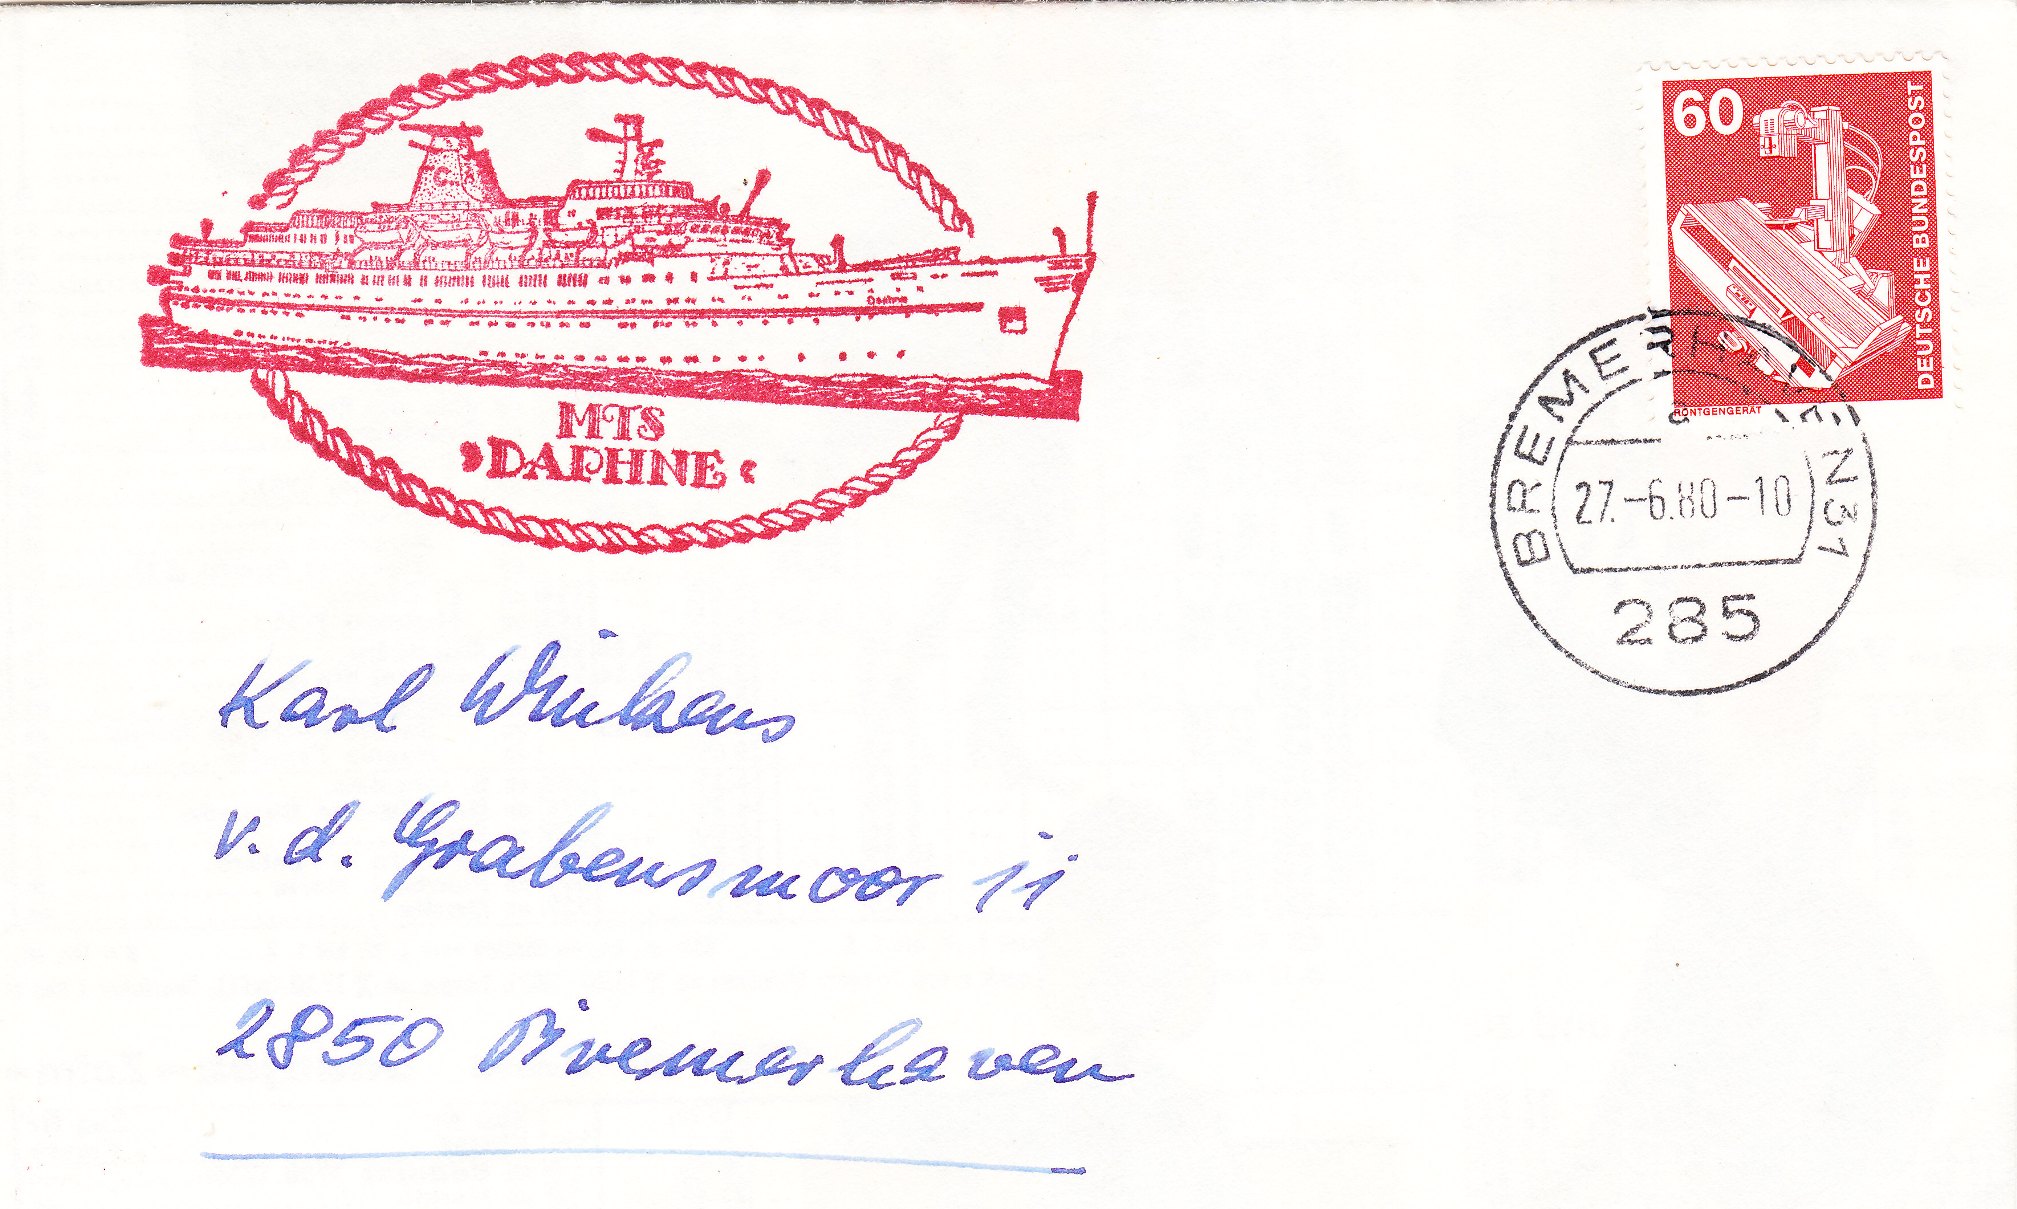 C
Daphne
MTS
DAPHNE
60
DEUTSCHE BUNDESPOST
RÖNTGENGERÄT
BREMERHAVEN 31
27.-6.80-10
285
Karl
v. d. Grabensmoor 11
2850 Bremerhaven